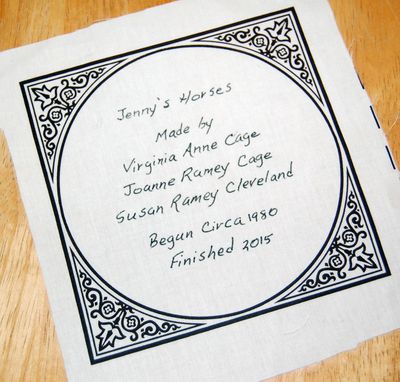 Jenny's Horses
Made by
Virginia Anne Cage
Joanne Ramey Cage
Susan Ramey Cleveland
Begun Circa 1980
Finished 2015